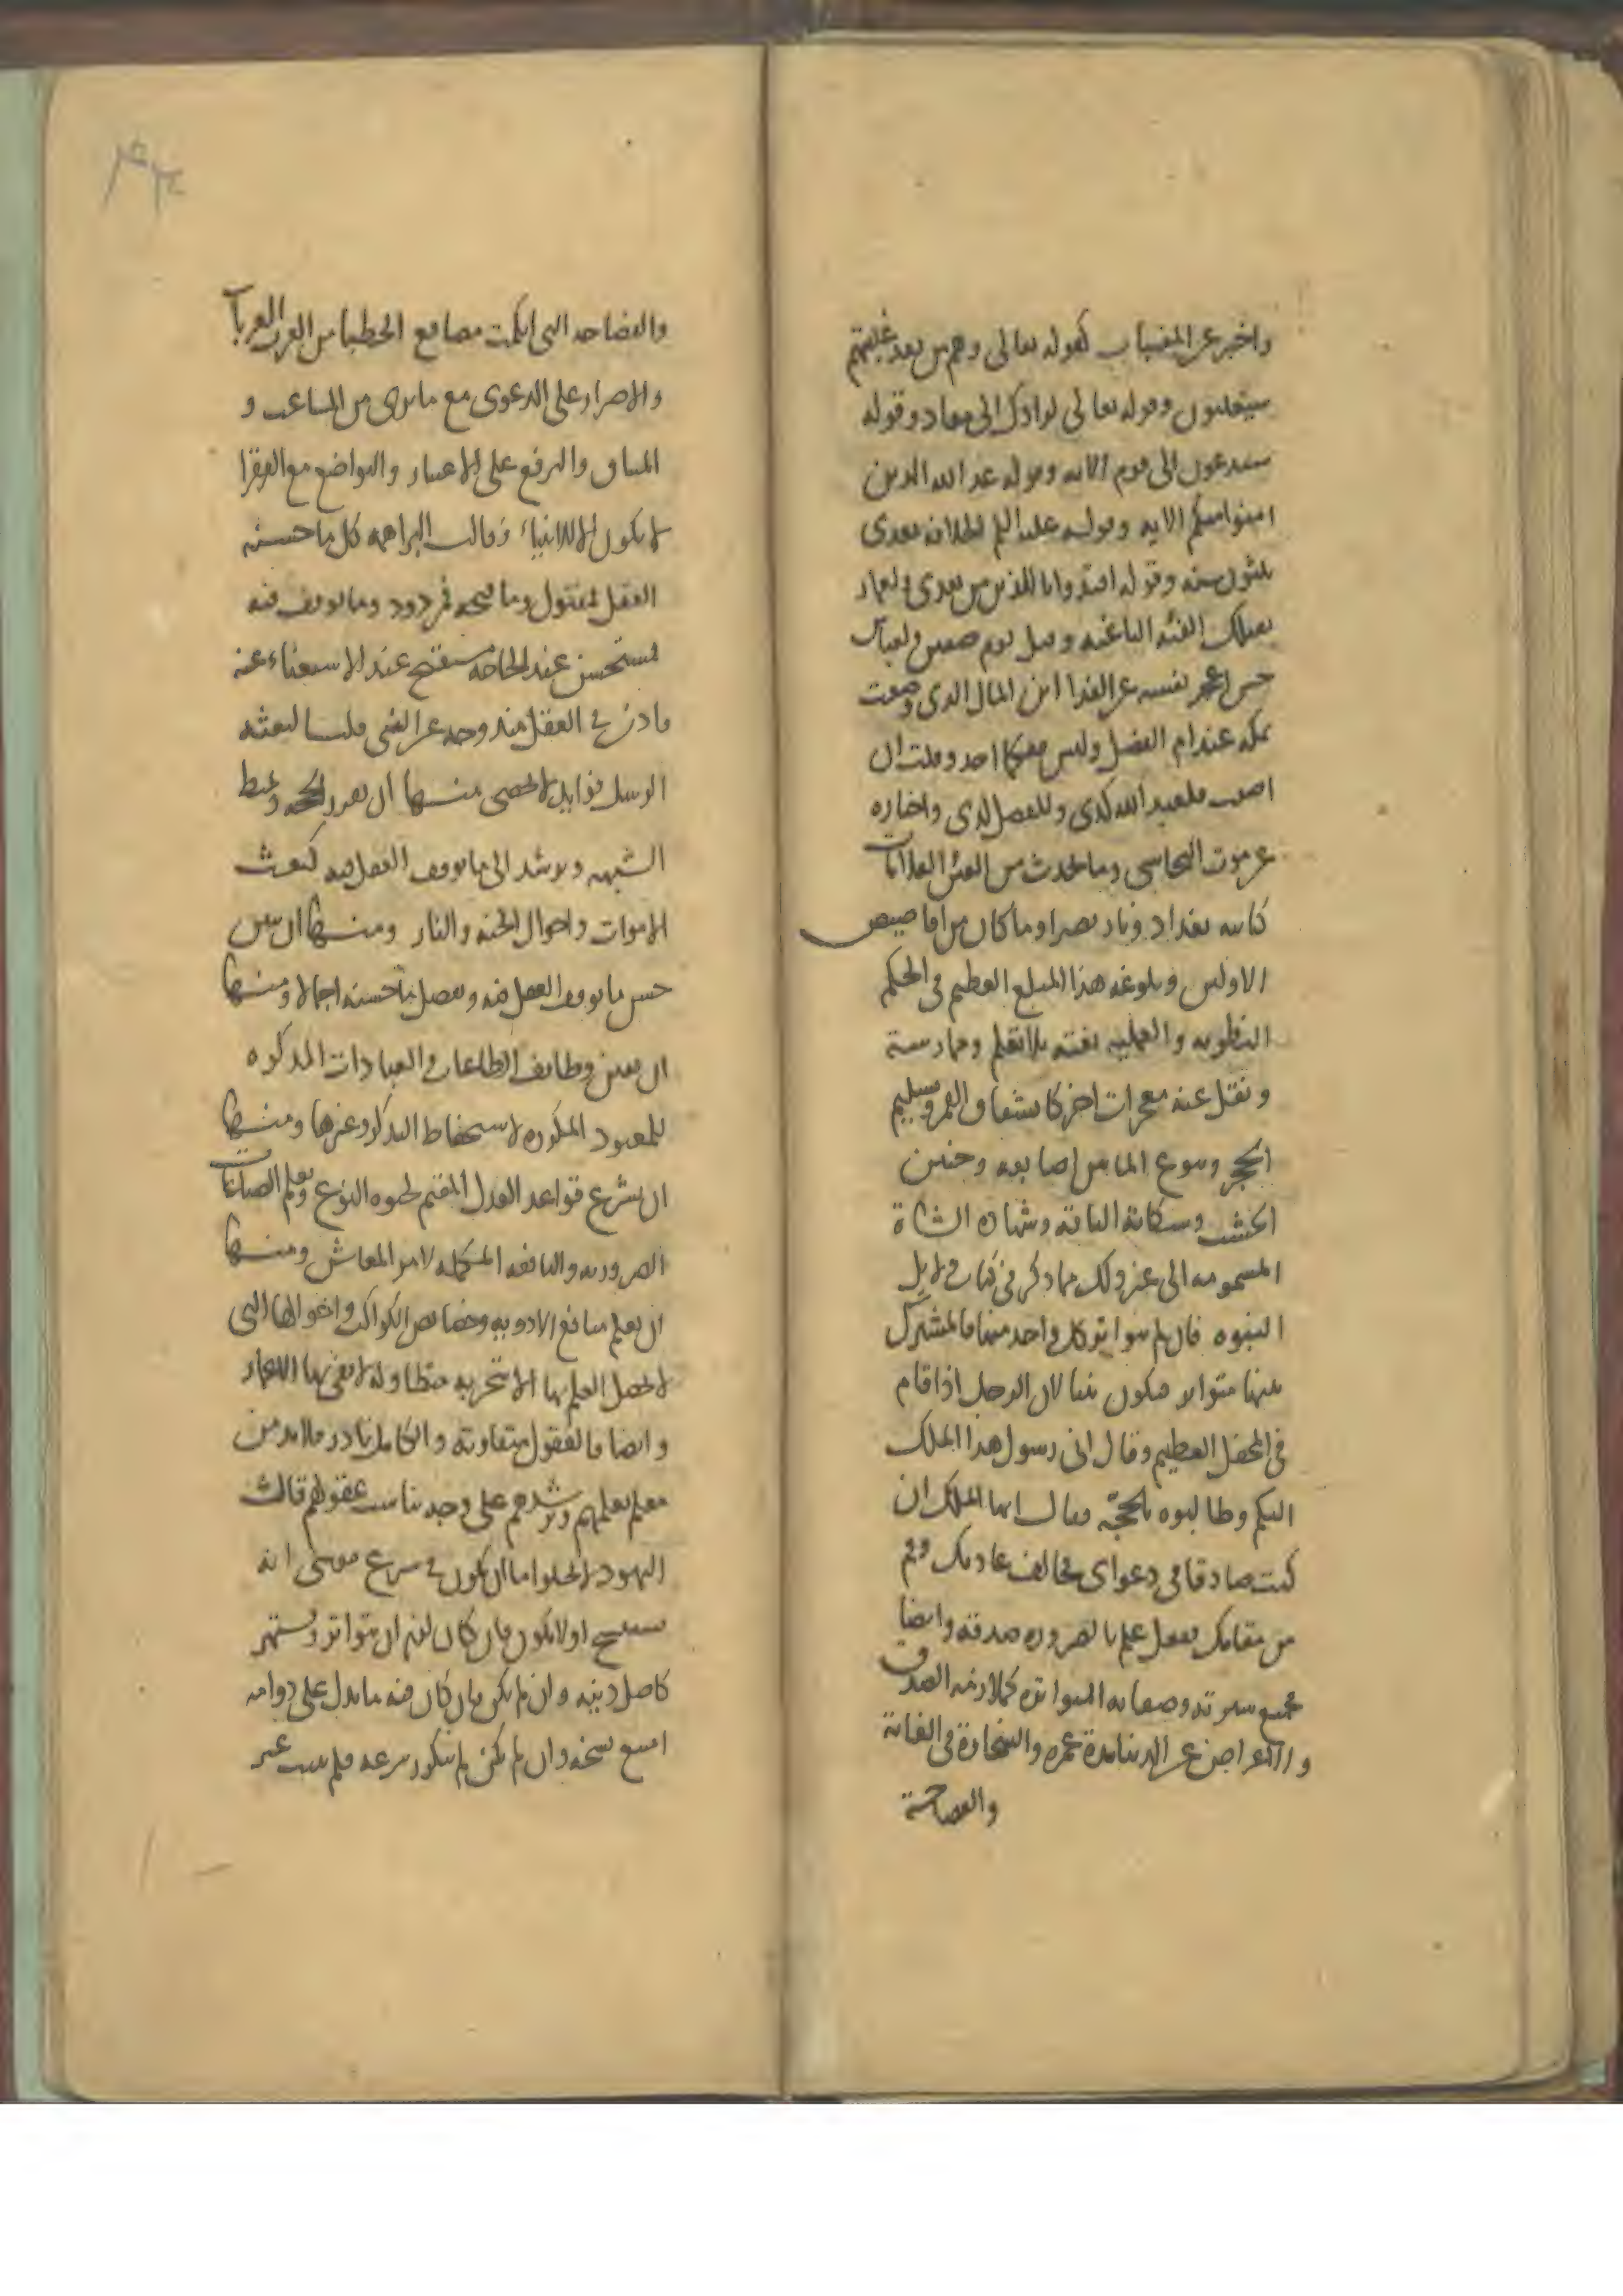 واخبر عن المغيبات كقوله تعالى وهم من بعد غلبهم
سيغلبون وقوله تعالى لرادك الى معاد وقوله
ستدعون الى قوم الآيه وقوله وعد الله الذين
امنوا منكم الايه وقوله عليه السلم الخلافه بعدى
ثلثون سنه وقوله اقتدوا باللذين من بعدى ولعمار
تقتلك الفئه الباغيه وقتل يوم صفين ولعباس
حين اعجز نفسه عن الفدا اين المال الذى وضعت
بمكه عند ام الفضل وليس معكما احد وقلت ان
اصبت فلعبد الله كذى وللفضل كذى واخباره
عن موت النجاشى وما يحدث من الفتن العلامات
كنايبه بغداد ونار بصرا وما كان من اقاصيص
الاولين وبلوغه هذا المبلغ العظيم فى الحكم
النظريه والعمليه بغته بلا تعلم وممارسة
ونقل عنه معجزات اخر كانشقاق القمر وتسليم
الحجر ونبوع الما من اصابعه وحنين
الخشب وشكاية الناقه وشهاده الشاة
المسمومه الى غير ذلك مما ذكر فى كتاب دلايل
النبوه فان لم يتواتر كل واحد منها فالمشترك
بينها متواتر فيكون نبيا لان الرجل اذا قام
فى المحفل العظيم وقال انى رسول هذا الملك
اليكم وطالبوه بالحجّه فقال ايها الملك ان
كنت صادقا فى دعواى فخالف عادتك وقم
من مقامك ففعل علم بالضروره صدقه وايضا
جميع سيرته وصفاته المتواتره كملازمه الصدق
والاعراض عن الدنيا مدة عمره والسخاوة فى الغاية
والفصاحة
والفصاحه التى ابكمت مصاقع الخطبا من العرب العربا
والاصرار على الدعوى مع ما يرى من المتاعب و
المشاق والترفع على الاغنيا والتواضع مع الفقرا
لا يكون الا للانبياء وقالت البراهمه كل ما حسنه
العقل فمقبول وما قبحه فمردود وما توقف فيه
فمستحسن عند الحاجه مستقبح عند الاستغناء عنه
فاذن فى العقل مندوحه عن النبى قلنا لبعثه
الرسل فوايد لا تحصى منها ان يقرر الحجه ويميط
الشبهه ويرشد الى ما توقف العقل فيه كبعث
الاموات واحوال الجنه والنار ومنها ان يبين
حسن ما توقف العقل فيه ويفصل ما حسنه اجمالا ومنها
ان يعين وظايف الطاعات والعبادات المذكره
للمعبود المكرره لاستحفاظ التذكر وغيرها ومنها
ان يشرع قواعد العدل المقيم لحيوه النوع ويعلم الصناعات
الضروريه والنافعه المكمله لامر المعاش ومنها
ان يعلم منافع الادويه وخصايص الكواكب واحوالها التى
لا يحصل العلم بها الا بتجربه متطاوله لا يفى بها الاعمار
وايضا فالعقول متفاوته والكامل نادر فلا بد من
معلم يعلمهم ويرشدهم على وجه يناسب عقولهم قالت
اليهود لا يخلوا اما ان يكون فى شرع موسى انه
سينسخ اولا يكون فان كان لزم ان يتواتر ويشتهر
كاصل دينه وان لم يكن فان كان فيه ما يدل على دوامه
امتنع نسخه وان لم يكن لم يتكرر شرعه فلم يثبت غير